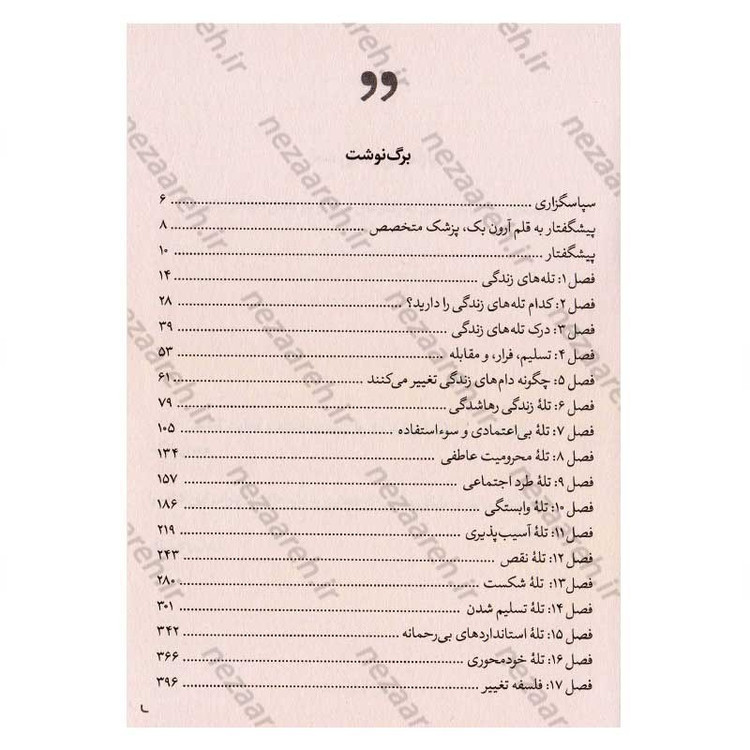 برگ‌نوشت
سپاسگزاری ........ ۶
پیشگفتار به قلم آرون بک، پزشک متخصص ........ ۸
پیشگفتار ........ ۱۰
فصل ۱: تله‌های زندگی ........ ۱۴
فصل ۲: کدام تله‌های زندگی را دارید؟ ........ ۲۸
فصل ۳: درک تله‌های زندگی ........ ۳۹
فصل ۴: تسلیم، فرار، و مقابله ........ ۵۳
فصل ۵: چگونه دام‌های زندگی تغییر می‌کنند ........ ۶۱
فصل ۶: تلهٔ زندگی رهاشدگی ........ ۷۹
فصل ۷: تلهٔ بی‌اعتمادی و سوءاستفاده ........ ۱۰۵
فصل ۸: تلهٔ محرومیت عاطفی ........ ۱۳۴
فصل ۹: تلهٔ طرد اجتماعی ........ ۱۵۷
فصل ۱۰: تلهٔ وابستگی ........ ۱۸۶
فصل ۱۱: تلهٔ آسیب‌پذیری ........ ۲۱۹
فصل ۱۲: تلهٔ نقص ........ ۲۴۳
فصل ۱۳: تلهٔ شکست ........ ۲۸۰
فصل ۱۴: تلهٔ تسلیم شدن ........ ۳۰۱
فصل ۱۵: تلهٔ استانداردهای بی‌رحمانه ........ ۳۴۲
فصل ۱۶: تلهٔ خودمحوری ........ ۳۶۶
فصل ۱۷: فلسفه تغییر ........ ۳۹۶
nezaareh.ir